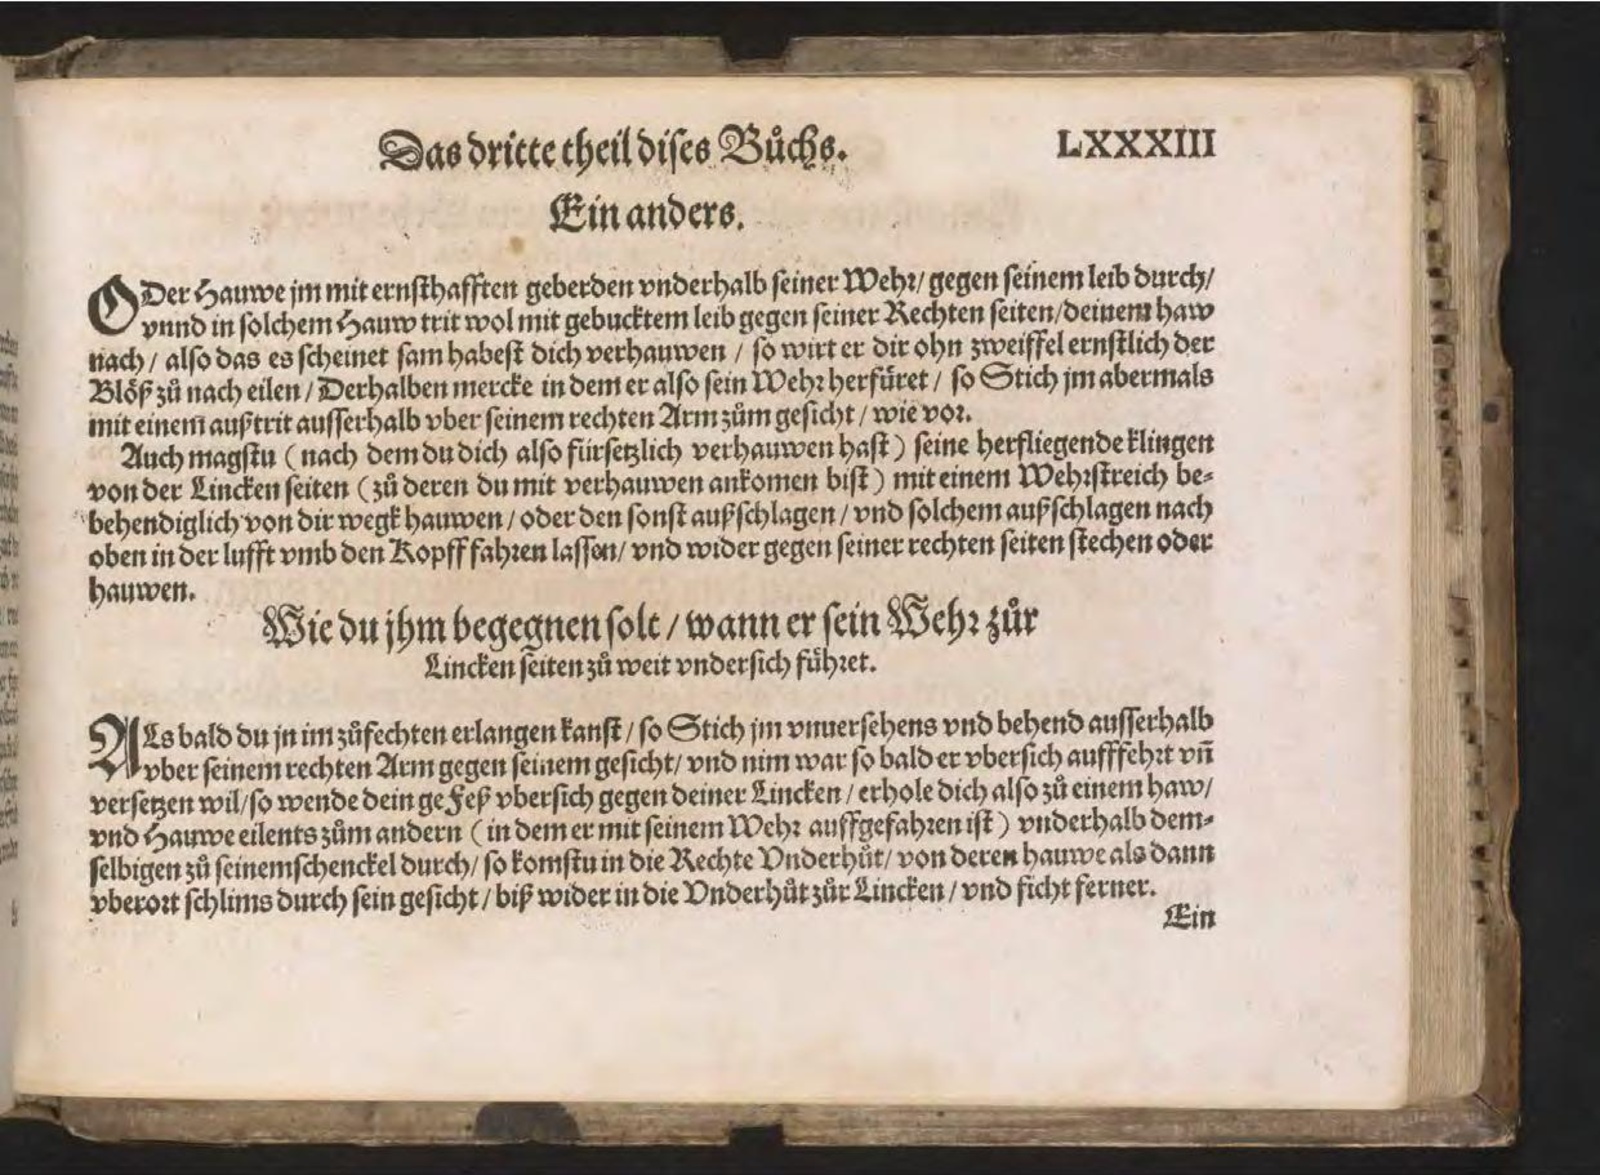 Das dritte theil dises Bůchs.
LXXXIII
Ein anders.
ODer Hauwe jm mit ernsthafften geberden vnderhalb seiner Wehr/ gegen seinem leib durch/
vnnd in solchem Hauw trit wol mit gebucktem leib gegen seiner Rechten seiten/ deinem haw
nach / also das es scheinet sam habest dich verhauwen / so wirt er dir ohn zweiffel ernstlich der
Blöß zů nach eilen / Derhalben mercke in dem er also sein Wehr herfüret / so Stich jm abermals
mit einem̃ außtrit ausserhalb vber seinem rechten Arm zům gesicht / wie vor.
Auch magstu ( nach dem du dich also fürsetzlich verhauwen hast ) seine herfliegende klingen
von der Lincken seiten ( zů deren du mit verhauwen ankomen bist ) mit einem Wehrstreich be-
behendiglich von dir wegk hauwen / oder den sonst außschlagen / vnd solchem außschlagen nach
oben in der lufft vmb den Kopff fahren lassen/ vnd wider gegen seiner rechten seiten stechen oder
hauwen.
Wie du jhm begegnen solt / wann er sein Wehr zůr
Lincken seiten zů weit vndersich führet.
ALs bald du jn im zůfechten erlangen kanst / so Stich jm vnuersehens vnd behend ausserhalb
vber seinem rechten Arm gegen seinem gesicht/ vnd nim war so bald er vbersich aufffehrt vñ
versetzen wil/ so wende dein gefeß vbersich gegen deiner Lincken / erhole dich also zů einem haw/
vnd Hauwe eilents zům andern ( in dem er mit seinem Wehr auffgefahren ist ) vnderhalb dem-
selbigen zů seinem schenckel durch/ so komstu in die Rechte Vnderhůt/ von deren hauwe als dann
vberort schlims durch sein gesicht / biß wider in die Vnderhůt zůr Lincken / vnd ficht ferner.
Ein